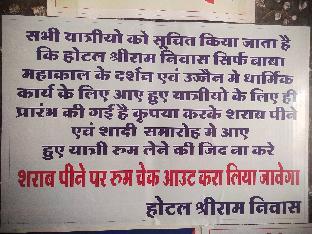 सभी यात्रीयो को सूचित किया जाता है
कि होटल श्रीराम निवास सिर्फ बाबा
महाकाल के दर्शन एवं उज्जैन मे धार्मिक
कार्य के लिए आए हुए यात्रीयो के लिए ही
प्रारंभ की गई है कृपया करके शराब पीने
एवं शादी समारोह मे आए
हुए यात्री रुम लेने की जिद ना करे
शराब पीने पर रुम चेक आउट करा लिया जावेगा
होटल श्रीराम निवास